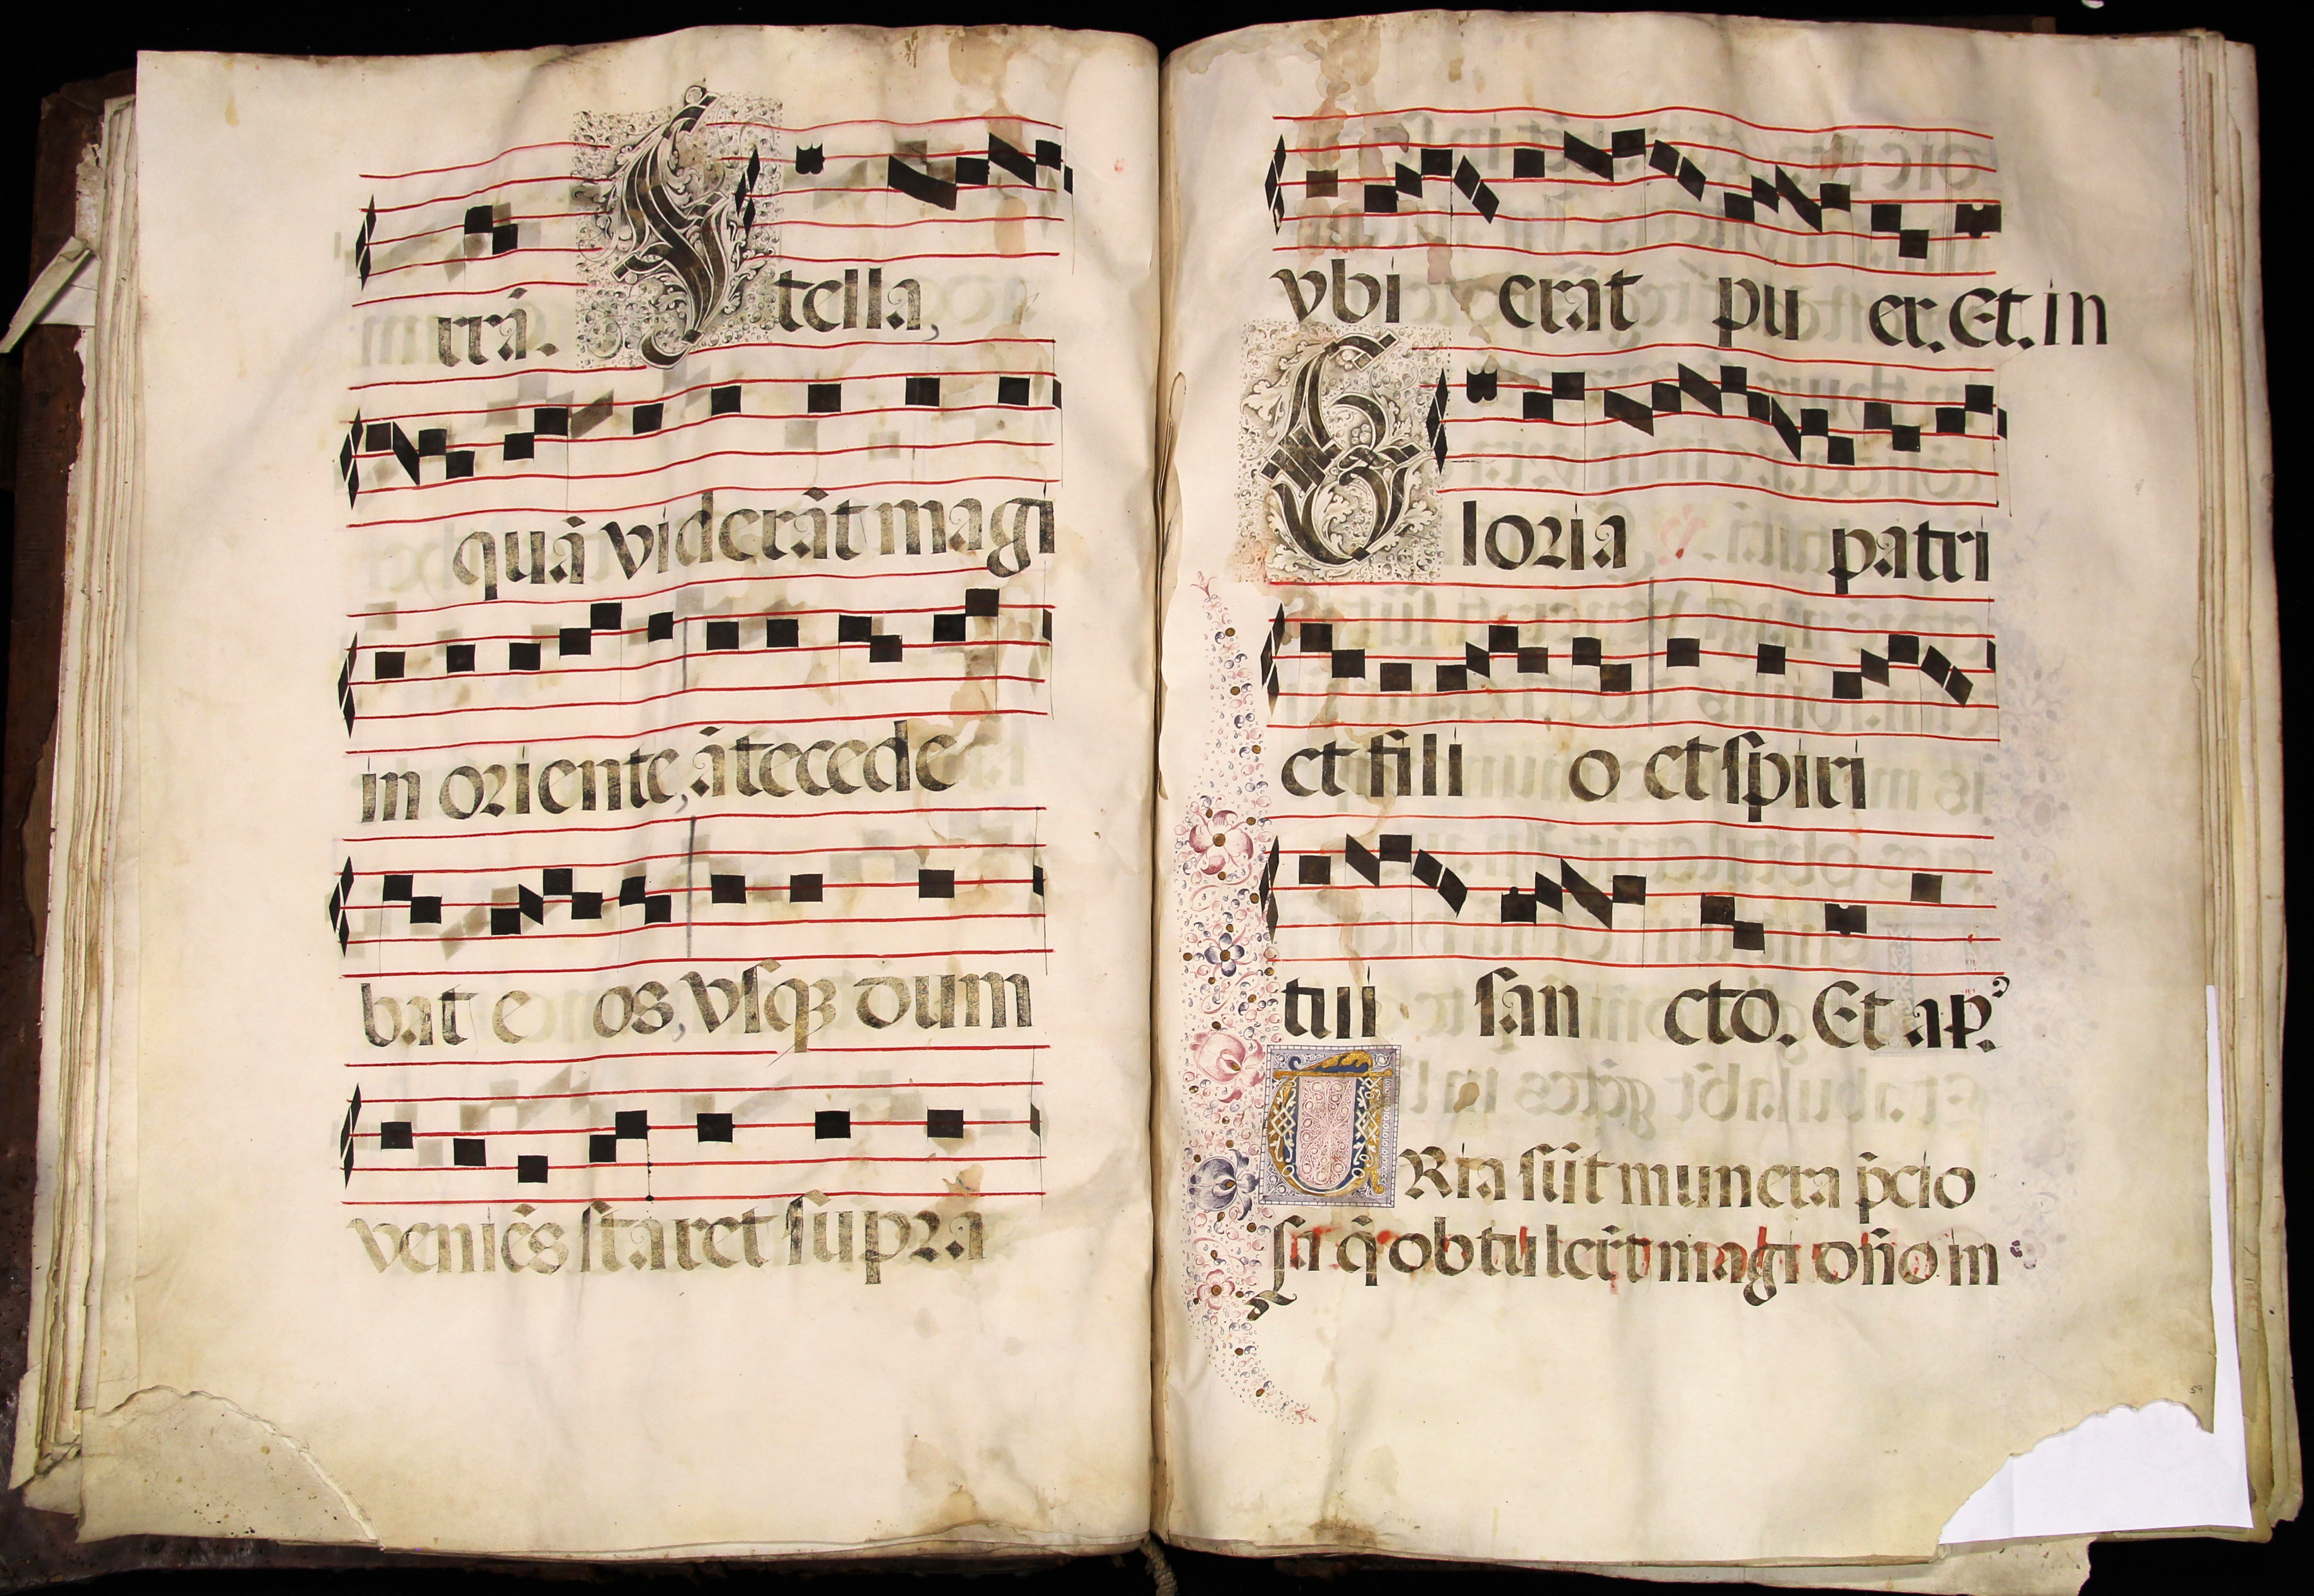 rrā. Stella,
quā viderāt magi
in oriente, ātecede
bat e os, vsqꝫ dum
veniēs staret supra
vbi erat pu er. Et. in
Gloria patri
et fili o et spiri
tui san cto. Et ap.
TRia sūt munera p̄cio
sa q̄ obtulerūt magi dn̄o in
59